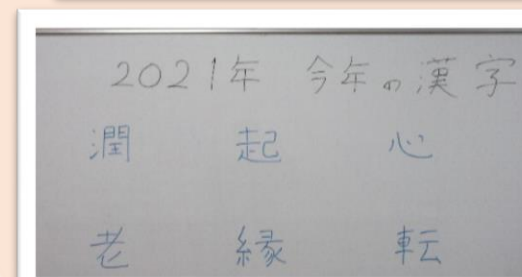 2021年 今年の漢字
潤 起 心
老 縁 転